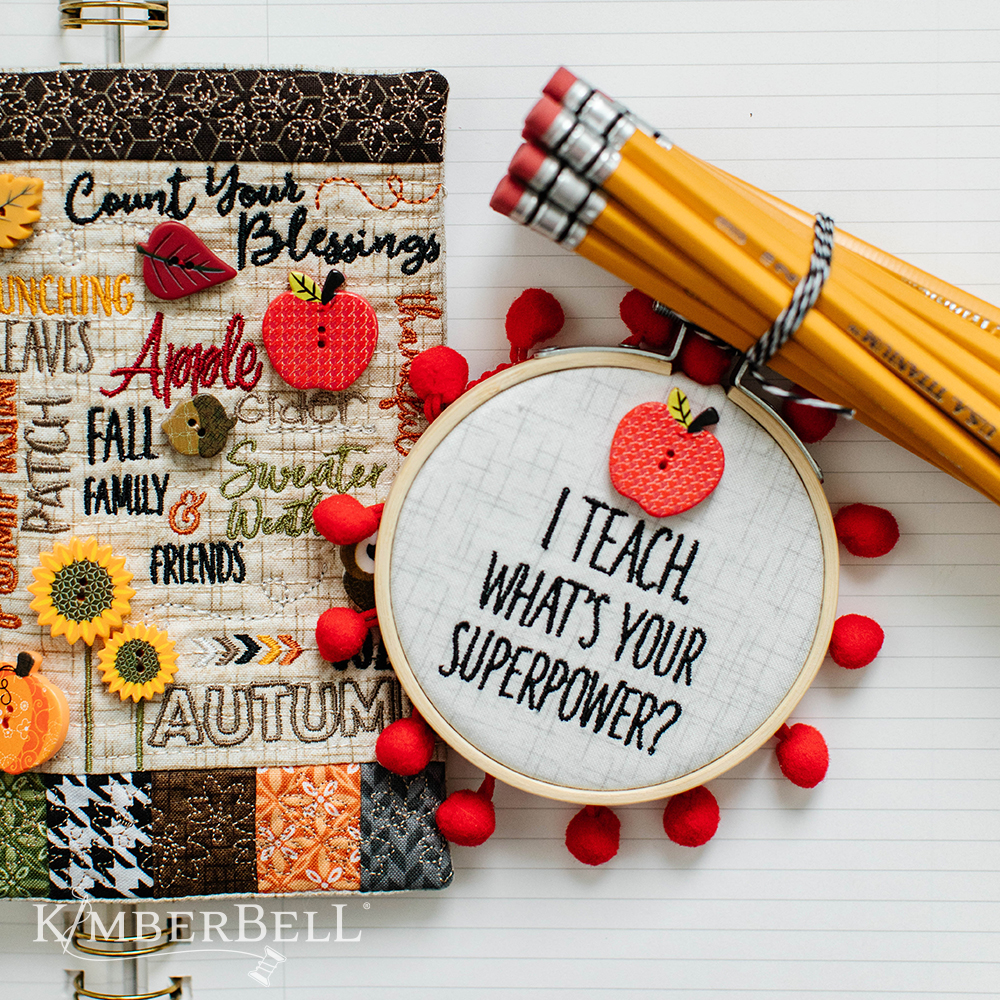 Count Your
Blessings
UNCHING
LEAVES
Apple
cider
PATCH
FALL
FAMILY
&
FRIENDS
Sweater
Weath
AUTUM
I TEACH.
WHAT'S YOUR
SUPERPOWER?
USA TITANIUM
KIMBERBELL®